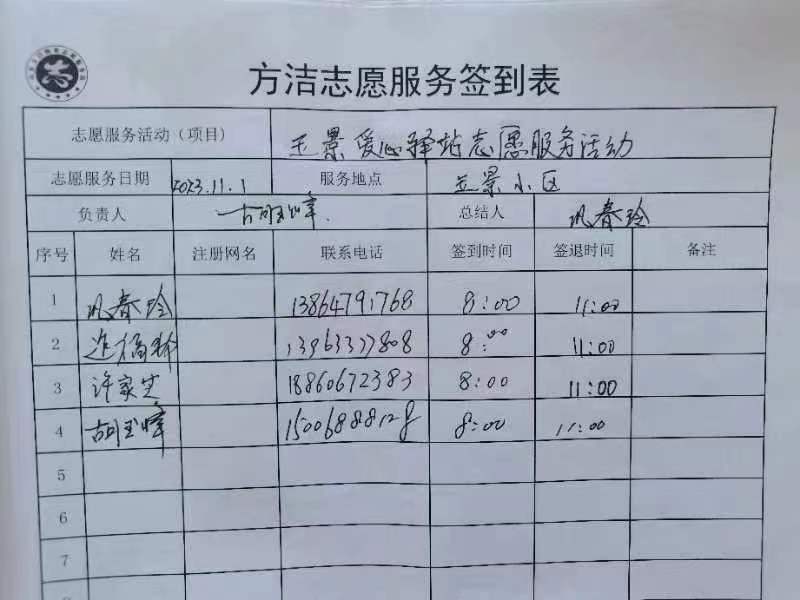 方洁志愿服务签到表
志愿服务活动（项目） 玉景爱心驿站志愿服务活动
志愿服务日期 2023.11.1 服务地点 玉景小区
负责人 胡玉峰. 总结人 巩春玲
序号 姓名 注册网名 联系电话 签到时间 签退时间 备注
1 巩春玲 13864791768 8:00 11:00
2 8:00 11:00
3 许家芝 18860672383 8:00 11:00
4 胡玉峰 15006888128 8:00 11:00
5
6
7